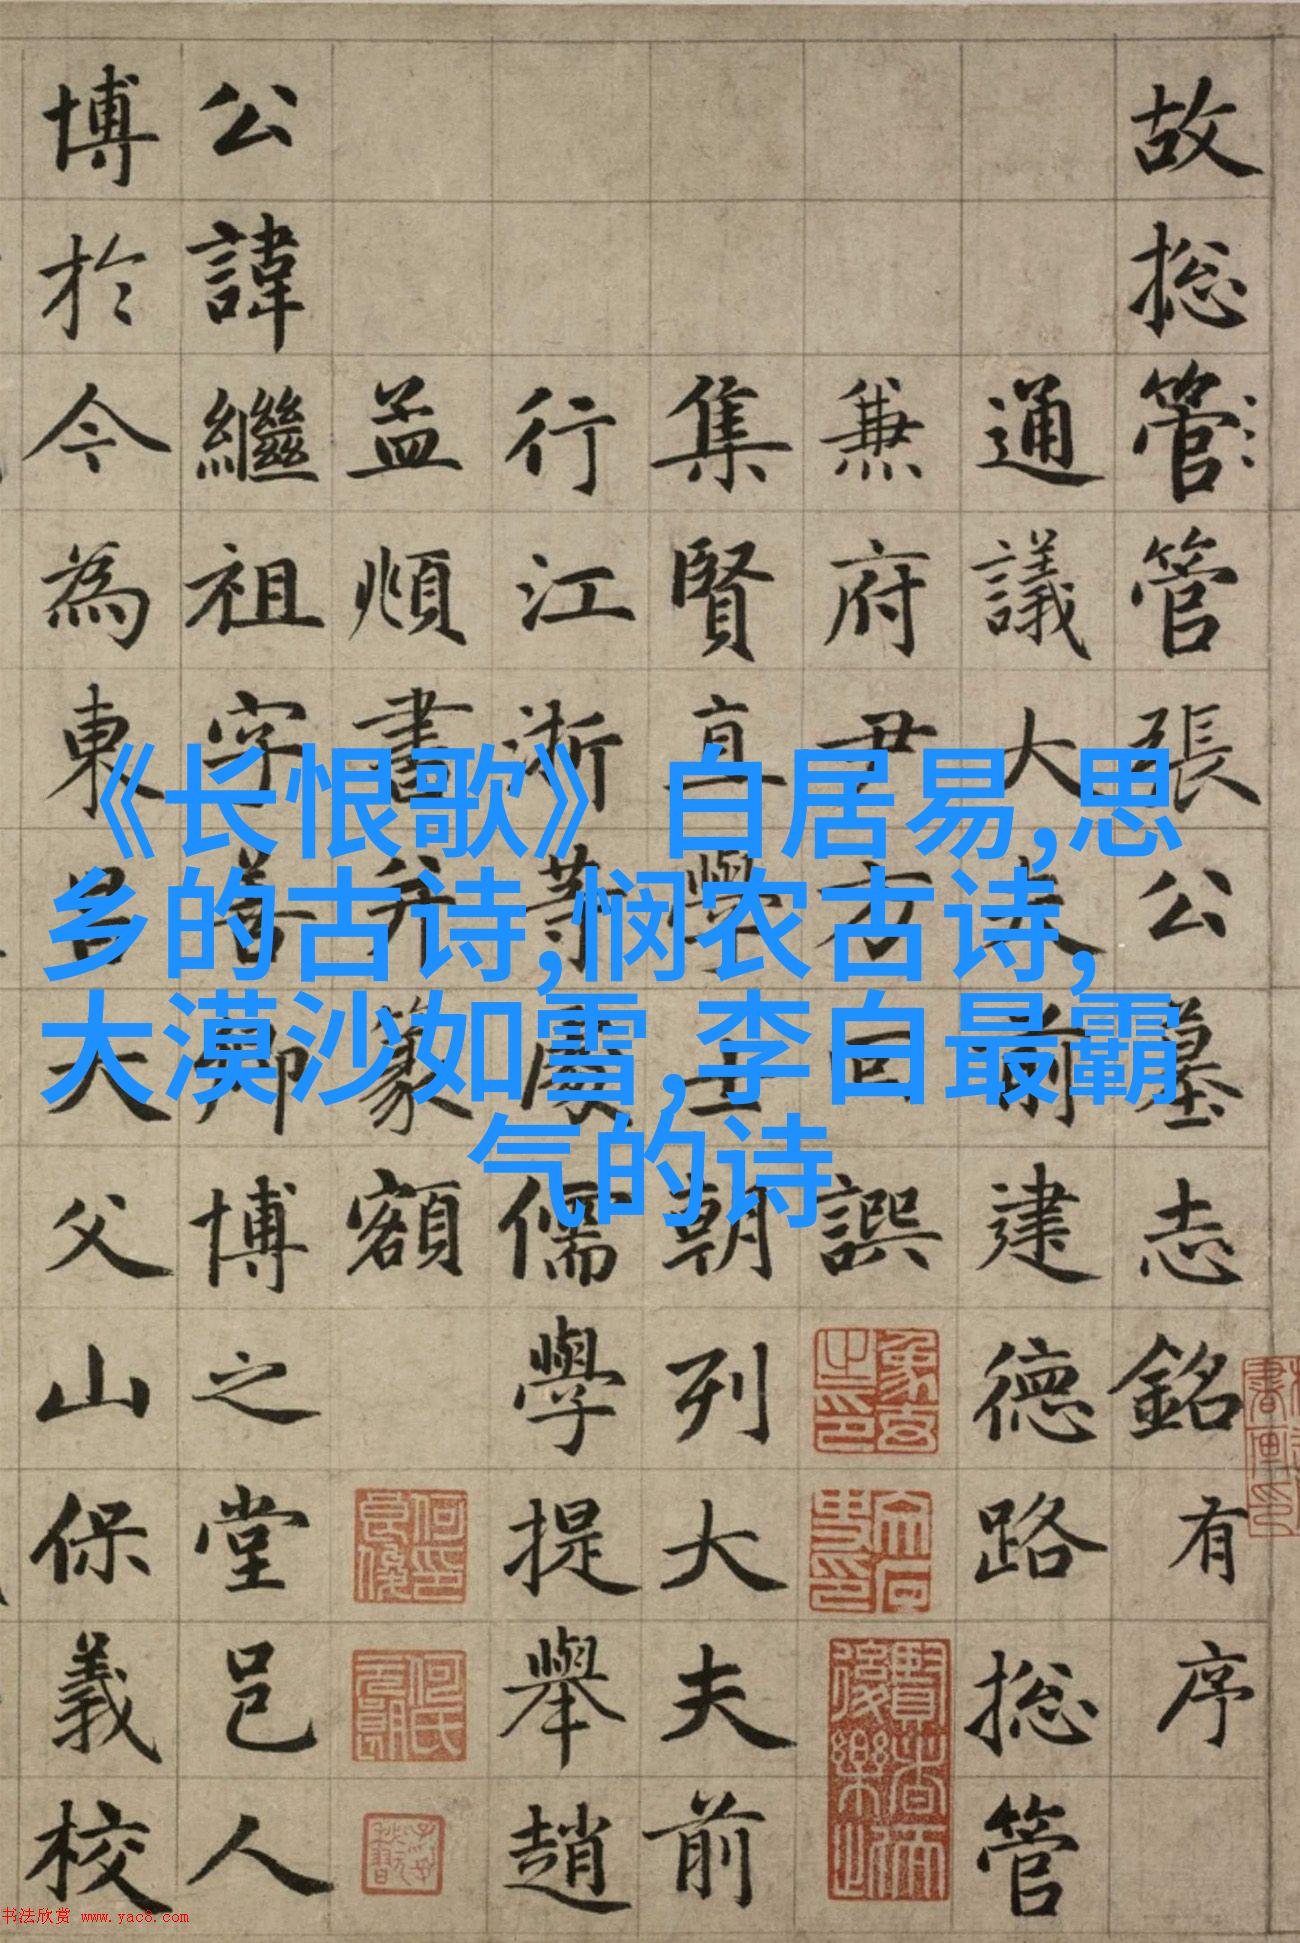 故総管管張公墓志銘有序
通議大夫前建德路総管
兼府尹方回譔
集賢直學士朝列大夫前
行江浙等處儒學提舉趙
孟頫書并篆額
公諱繼祖字善卿博之堂邑人
博於今為東昌大父山保義校
《长恨歌》白居易,思
乡的古诗,悯农古诗,
大漠沙如雪,李白最霸
气的诗
书法欣赏 www.yac8.com